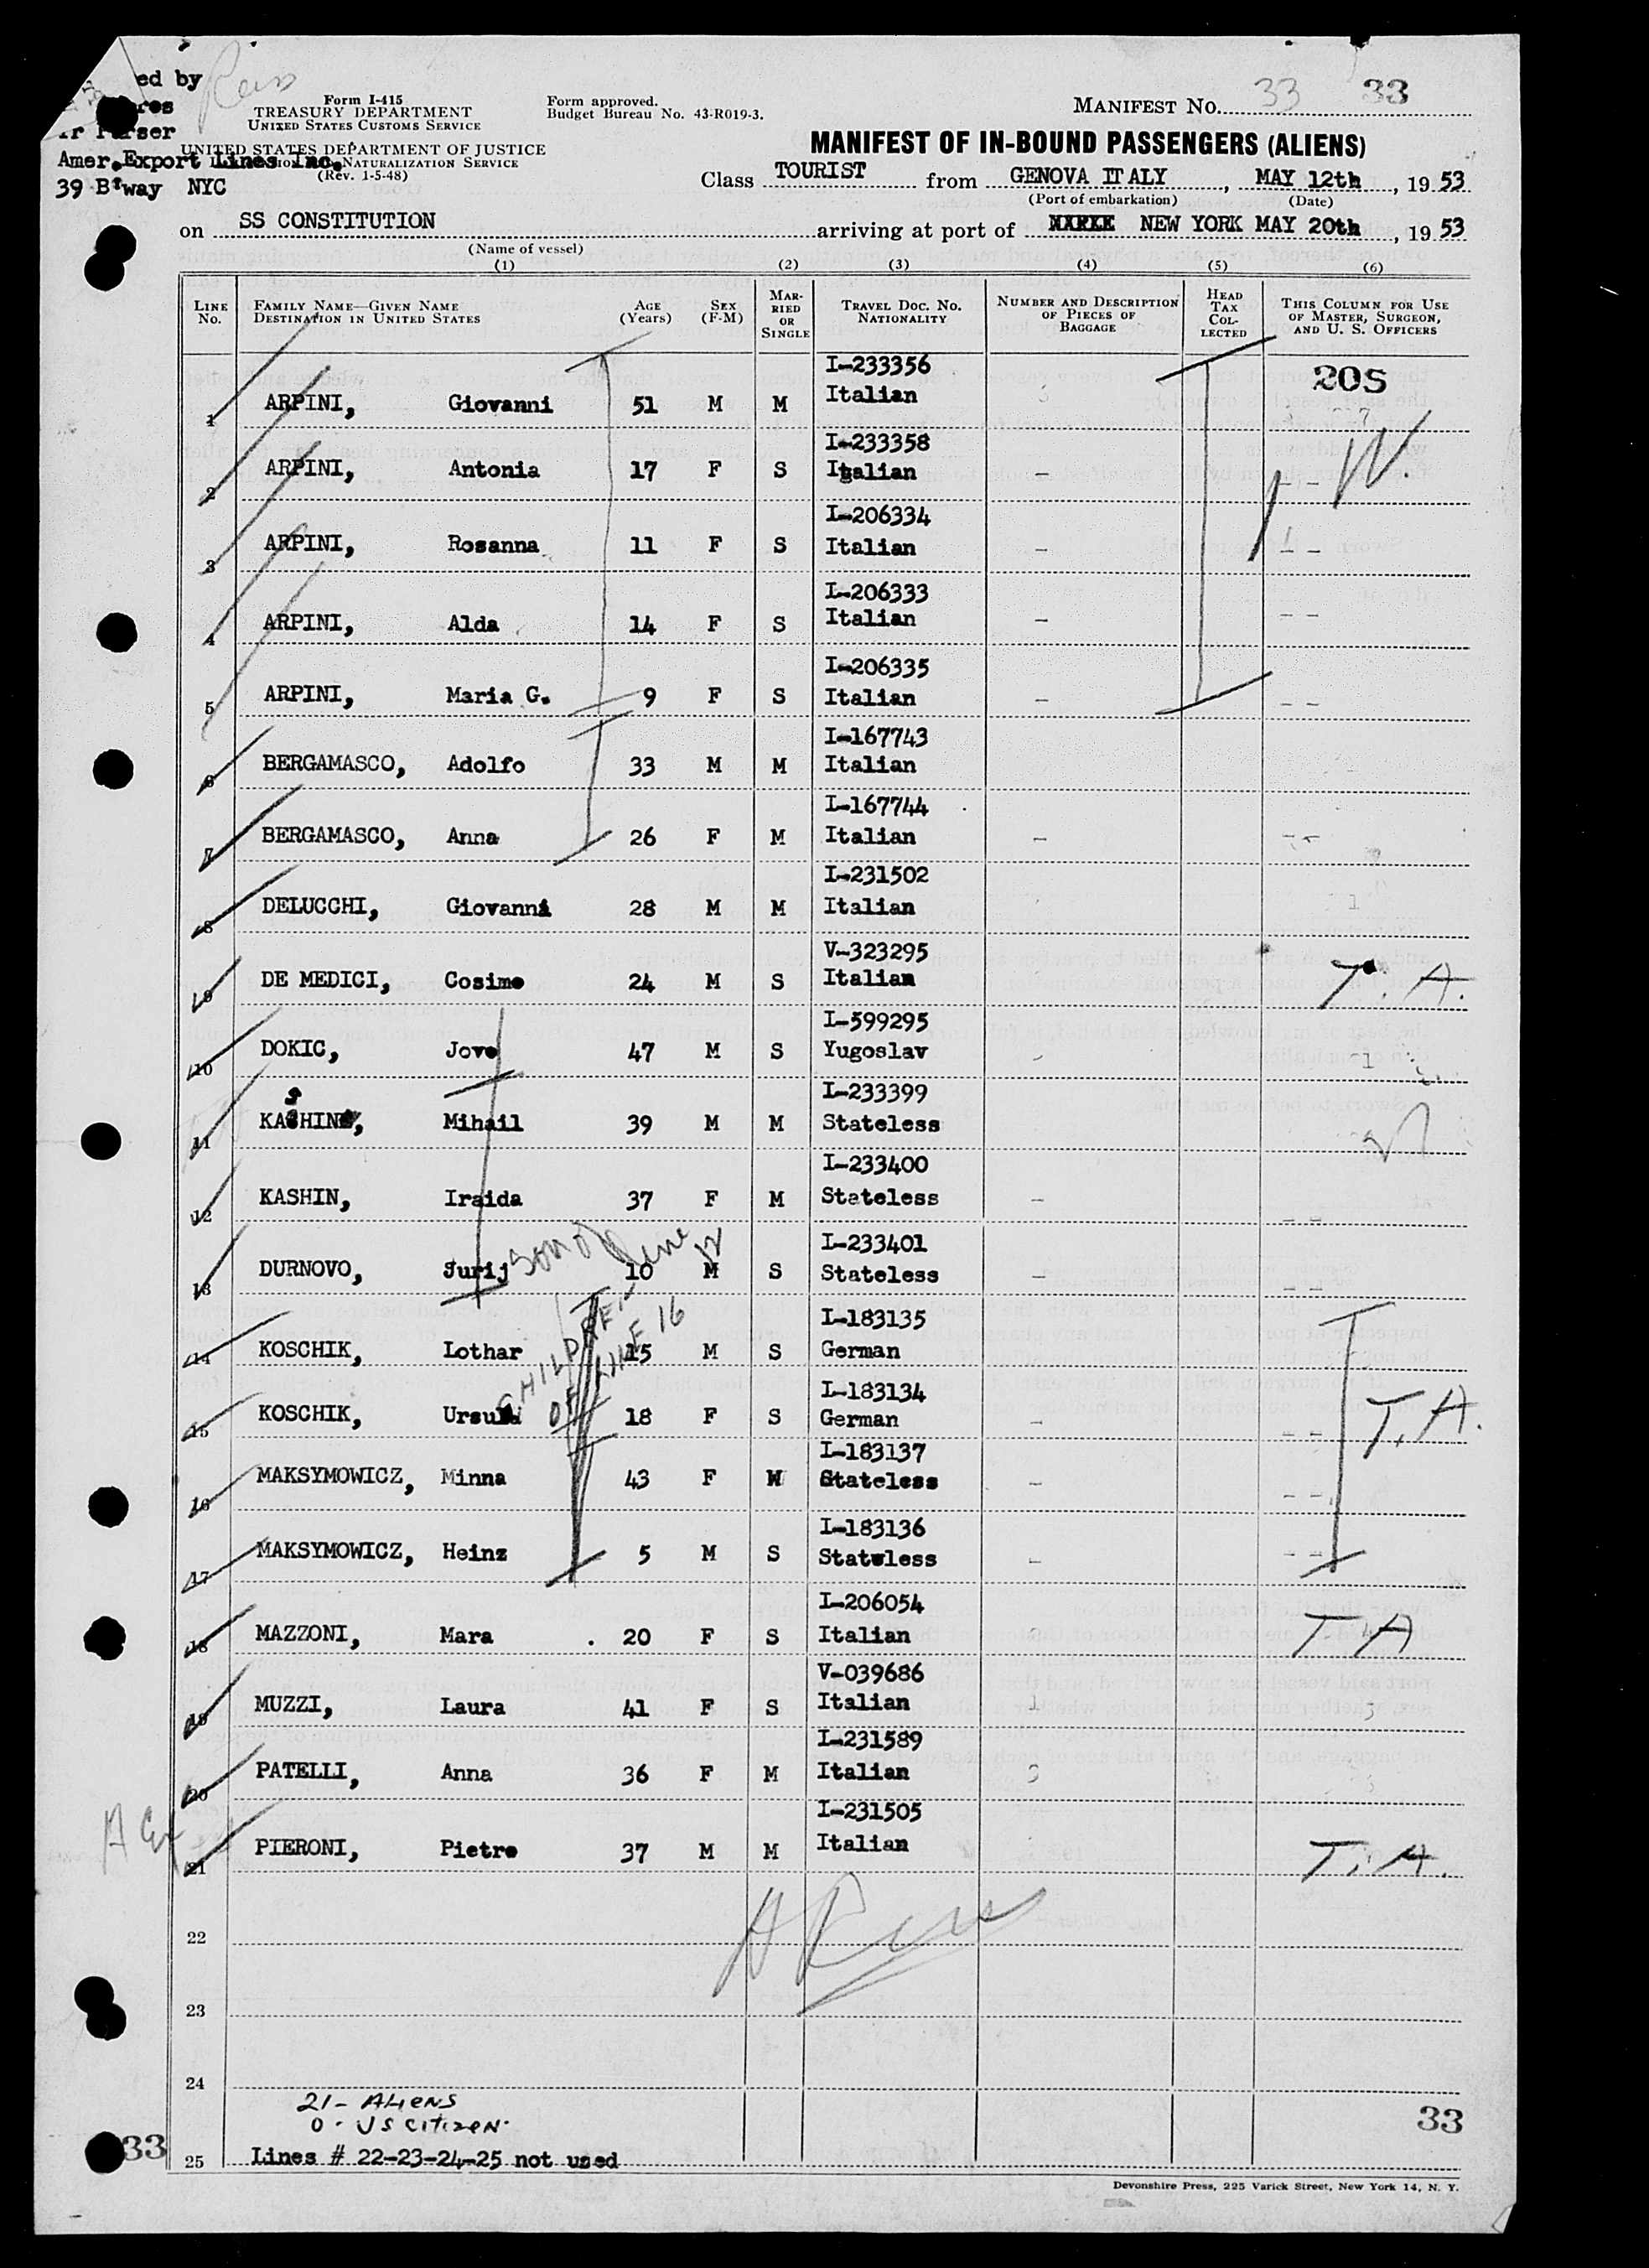 ed by
Form I-415
TREASURY DEPARTMENT
UNITED STATES CUSTOMS SERVICE
UNITED STATES DEPARTMENT OF JUSTICE
NATURALIZATION SERVICE
(Rev. 1-5-48)
Amer. Export Lines Inc.
39 B'way NYC
Form approved.
Budget Bureau No. 43-R019-3.
MANIFEST NO. 33 33
MANIFEST OF IN-BOUND PASSENGERS (ALIENS)
Class TOURIST from GENOVA ITALY, MAY 12th, 19 53
(Port of embarkation) (Date)
on SS CONSTITUTION arriving at port of NEW YORK MAY 20th, 19 53
(Name of vessel)
(1) (2) (3) (4) (5) (6)
LINE No. FAMILY NAME—GIVEN NAME DESTINATION IN UNITED STATES AGE (Years) SEX (F-M) MARRIED OR SINGLE TRAVEL DOC. NO. NATIONALITY NUMBER AND DESCRIPTION OF PIECES OF BAGGAGE HEAD TAX COLLECTED THIS COLUMN FOR USE OF MASTER, SURGEON, AND U. S. OFFICERS
20S
1 ARPINI, Giovanni 51 M M I-233356 Italian
2 ARPINI, Antonia 17 F S I-233358 Italian -
3 ARPINI, Rosanna 11 F S I-206334 Italian -
4 ARPINI, Alda 14 F S I-206333 Italian - - -
5 ARPINI, Maria G. 9 F S I-206335 Italian - - -
6 BERGAMASCO, Adolfo 33 M M I-167743 Italian
7 BERGAMASCO, Anna 26 F M I-167744 Italian - - -
8 DELUCCHI, Giovanni 28 M M I-231502 Italian 1
9 DE MEDICI, Cosimo 24 M S V-323295 Italian T. A.
10 DOKIC, Jovo 47 M S I-599295 Yugoslav 1
11 KASHIN, Mihail 39 M M I-233399 Stateless
12 KASHIN, Iraida 37 F M I-233400 Stateless - - -
13 DURNOVO, Jurij son of line 12 10 M S I-233401 Stateless - - -
14 KOSCHIK, Lothar 15 M S I-183135 German
CHILDREN OF LINE 16
15 KOSCHIK, Ursula 18 F S I-183134 German - - - T. A.
16 MAKSYMOWICZ, Minna 43 F W I-183137 Stateless - - -
17 MAKSYMOWICZ, Heinz 5 M S I-183136 Statwless - - -
18 MAZZONI, Mara . 20 F S I-206054 Italian T A
19 MUZZI, Laura 41 F S V-039686 Italian 1
20 PATELLI, Anna 36 F M I-231589 Italian
21 PIERONI, Pietro 37 M M I-231505 Italian T. A.
22
23
24
21 - ALIENS
0 - US CITIZEN.
33
33
25 Lines # 22-23-24-25 not used
Devonshire Press, 225 Varick Street, New York 14, N. Y.